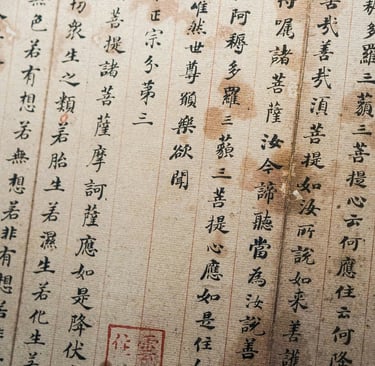 耨多羅三藐三菩提心云何應住云何降
哉善哉湏菩提如汝所說如來善護
囑諸菩薩汝今諦聽當為汝說善
阿耨多羅三藐三菩提心應如是住
唯然世尊願樂欲聞
正宗分第三
菩提諸菩薩摩訶薩應如是降伏
切衆生之類若胎生若濕生若化生若
色若有想若無想若非有想若非